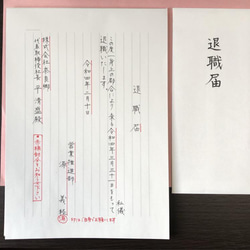 退職届
私儀
この度一身上の都合により、来る令和四年三月三十一日をもって
退職いたします。
令和四年二月十日
営業推進部
源 義経
株式会社奈良郷
代表取締役社長 平 清盛殿
退職届